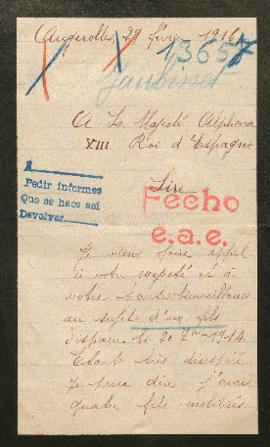 Augerolles, 29 Juin 1916
13657
A Sa Majesté Alphonse
XIII Roi d'Espagne
Pedir informes
Que se hace así
Devolver
Sire
Fecho
e.a.e.
Je viens faire appel
à votre majesté et à
votre haute bienveillance
au sujet d'un fils
disparu le 20 7bre 1914
Etant très
je puis dire j'avais
quatre fils mobilisés